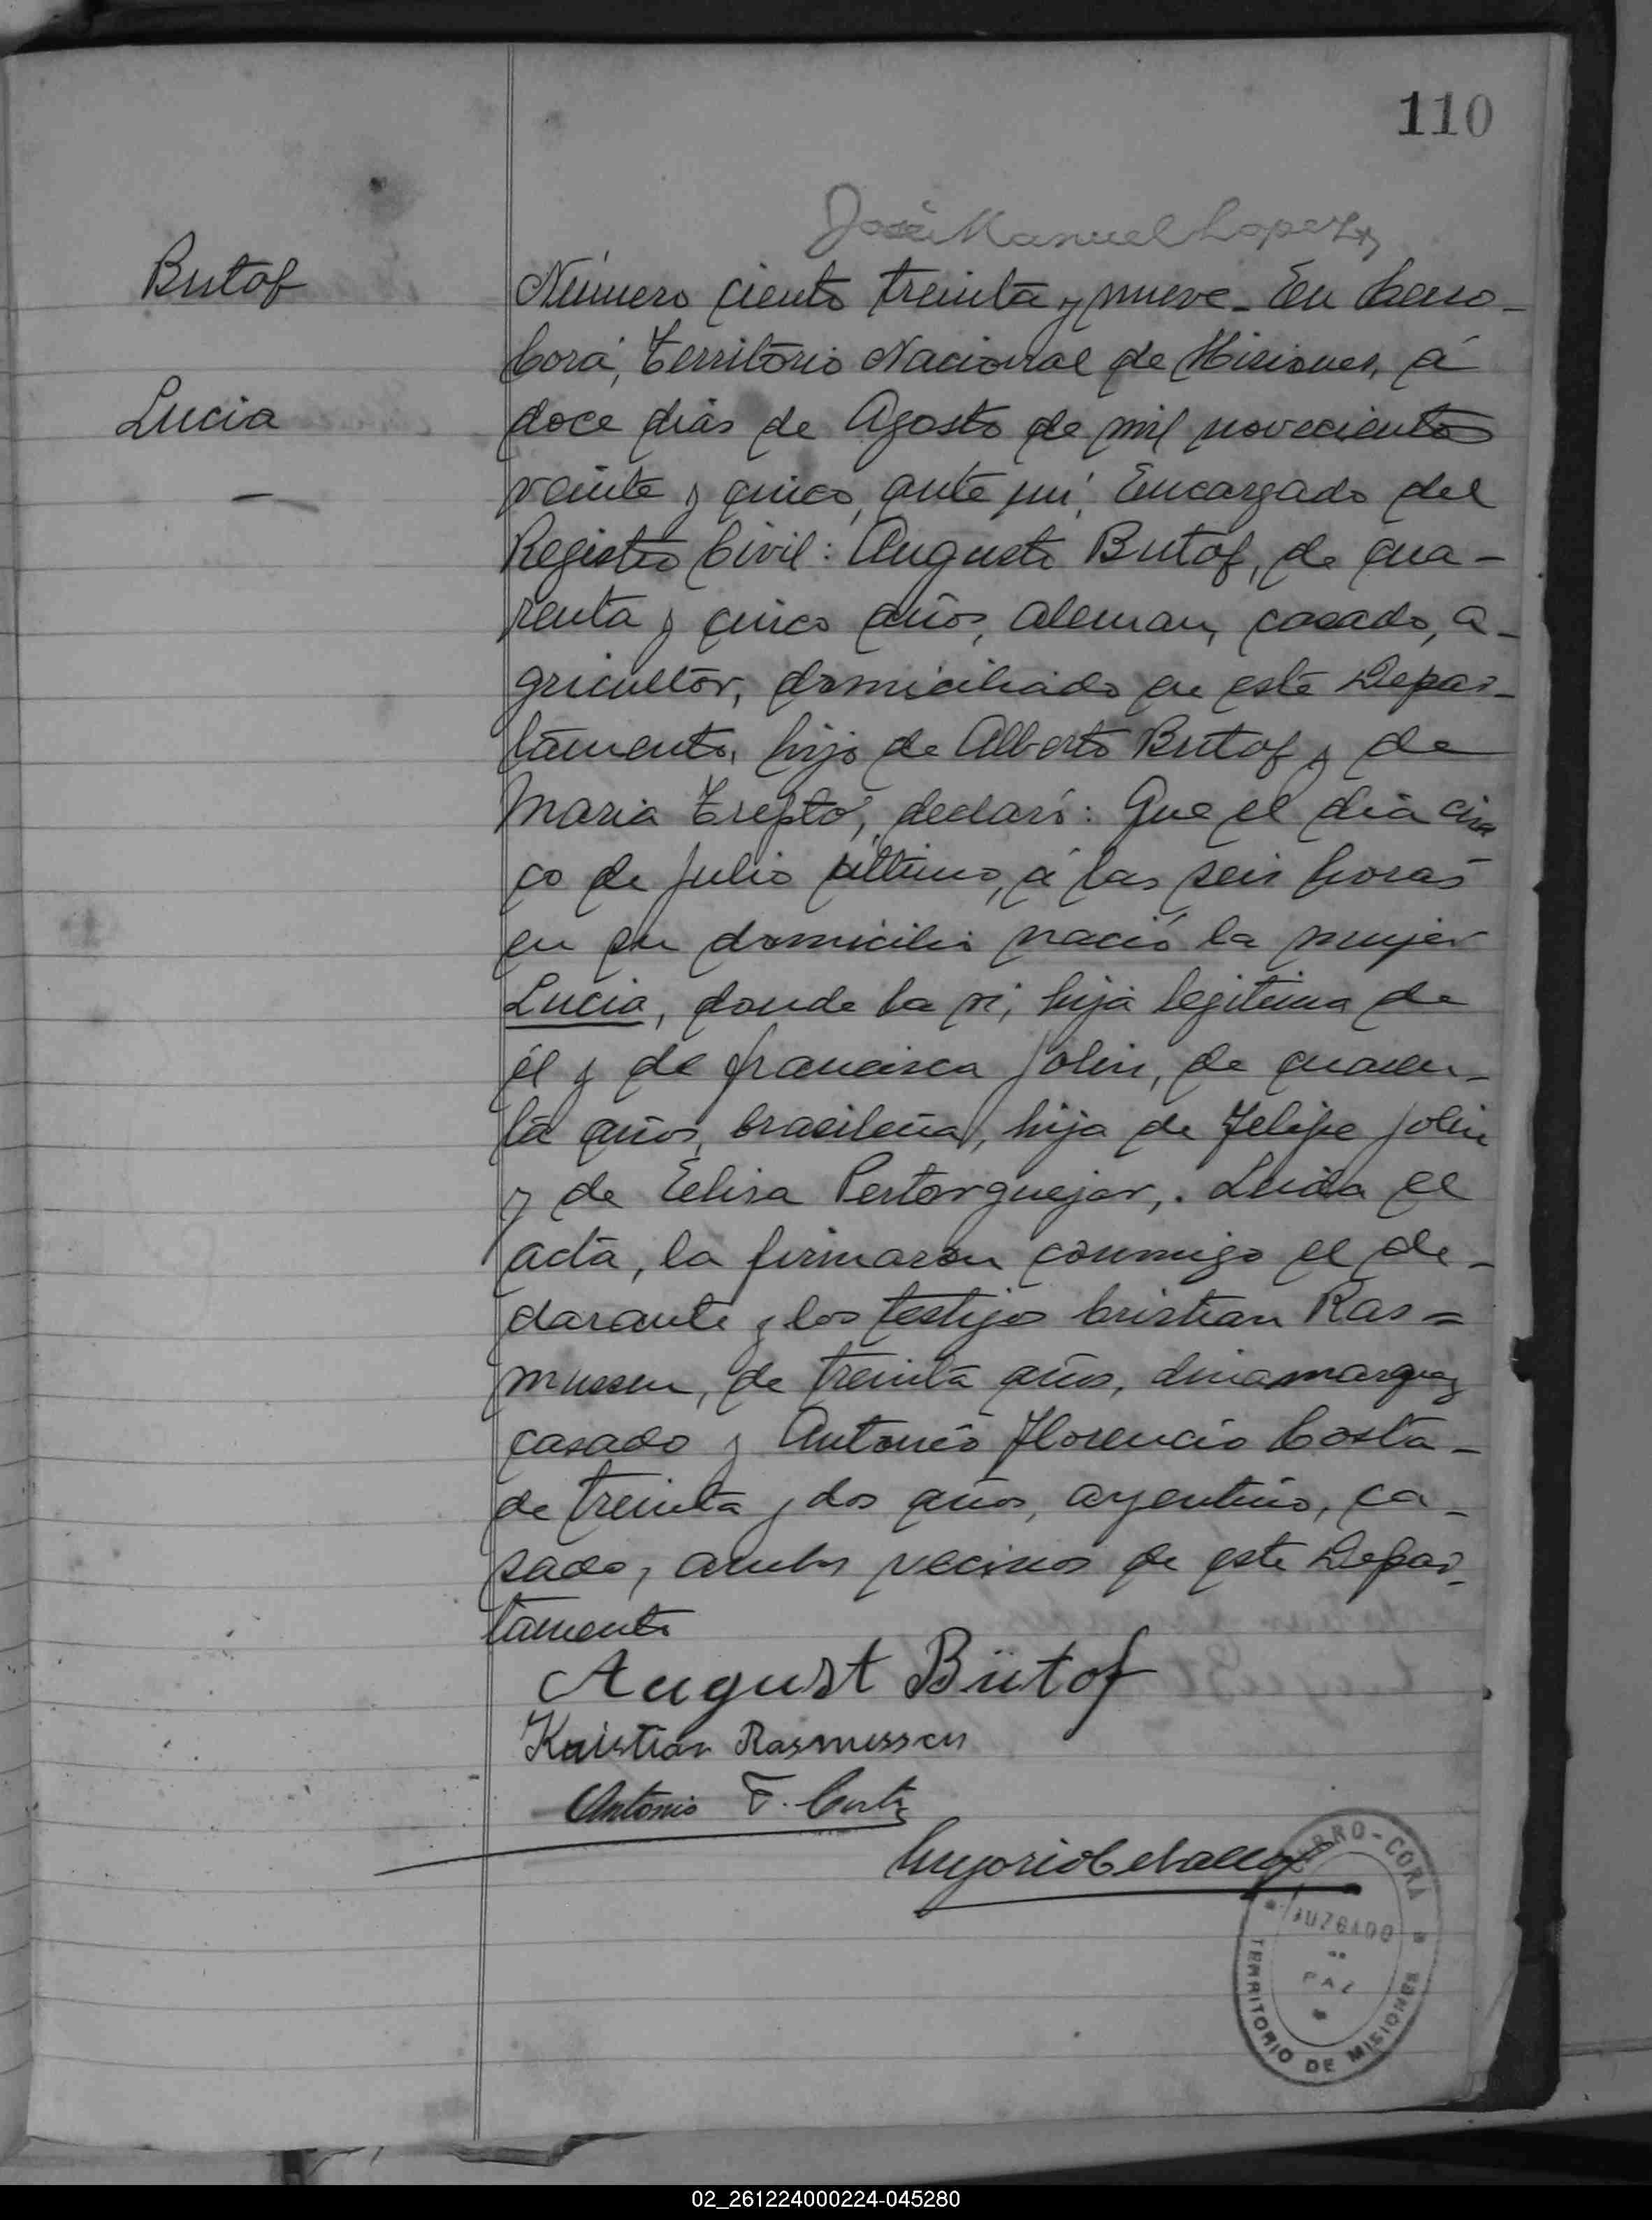 110
José Manuel Lopez
Butof
Lucia
Número ciento treinta y nueve - En Cerro -
Corá, Territorio Nacional de Misiones, á
doce dias de Agosto de mil novecientos
veinte y cinco, ante mí, Encargado del
Registro Civil: Augusto Butof, de cua -
renta y cinco años, aleman, casado, a -
gricultor, domiciliado en este Depar -
tamento, hijo de Alberto Butof y de
Maria Trepto, declaró: Que el dia cin
co de Julio último, á las seis horas
en su domicilio nació la mujer
Lucia, donde la ví, hija legitima de
él y de Francisca Jolin, de cuaren -
ta años, brasileña, hija de Felipe Jolin
y de Elisa Pertorguejar,. Leida el
acta, la firmaron conmigo el de -
clarante y los testigos Cristian Ras =
mussen, de treinta años, dinamarquez
casado y Antonio Florencio Costa -
de treinta y dos años, argentino, ca -
sado, ambos vecinos de este Depar -
tamento
August Bütof
Kristian Rasmussen
Antonio F. Costa
CERRO-CORÁ
JUZGADO
PAZ
TERRITORIO DE MISIONES
02_261224000224-045280